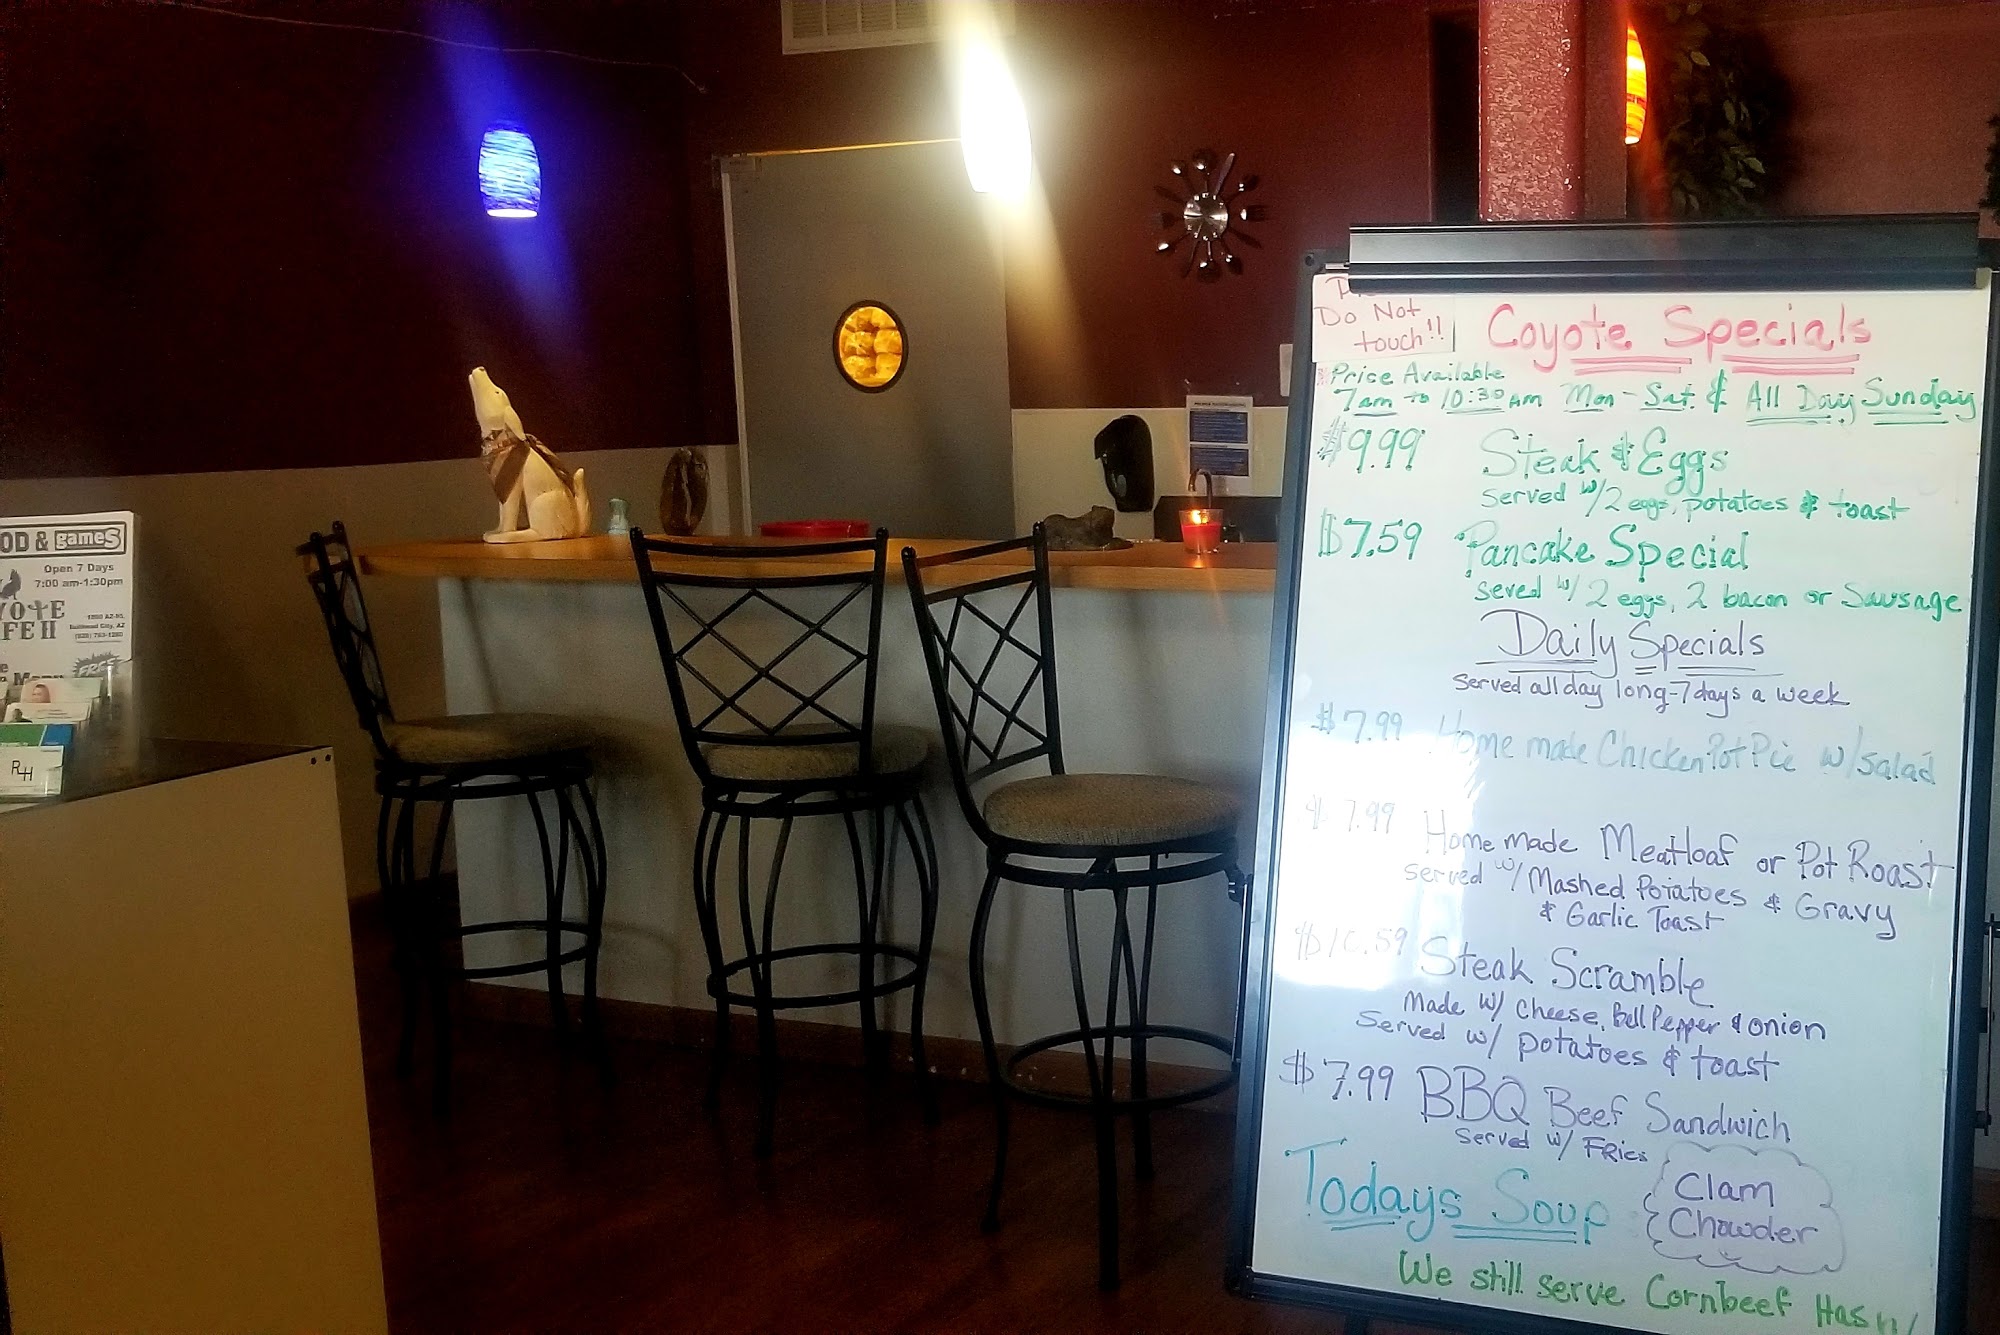 Do Not
touch!!
Coyote Specials
Price Available
7am to 10:30 AM Mon-Sat. & All Day Sunday
$9.99 Steak & Eggs
served w/2 eggs, potatoes & toast
$7.59 Pancake Special
seved w/ 2 eggs, 2 bacon or Sausage
Daily Specials
served all day long-7 days a week
$7.99 Home made Chicken Pot Pie w/salad
$7.99 Home made Meatloaf or Pot Roast
served w/ Mashed Potatoes & Gravy
& Garlic Toast
$10.59 Steak Scramble
Made w/ Cheese, Bell Pepper & onion
Served w/ potatoes & toast
$7.99 BBQ Beef Sandwich
served w/ FRies
Todays Soup
Clam
Chowder
We still serve Cornbeef Hash
OD & games
Open 7 Days
7:00 am-1:30pm
YOTE
FE II
Bullhead City, AZ
FREE
RH